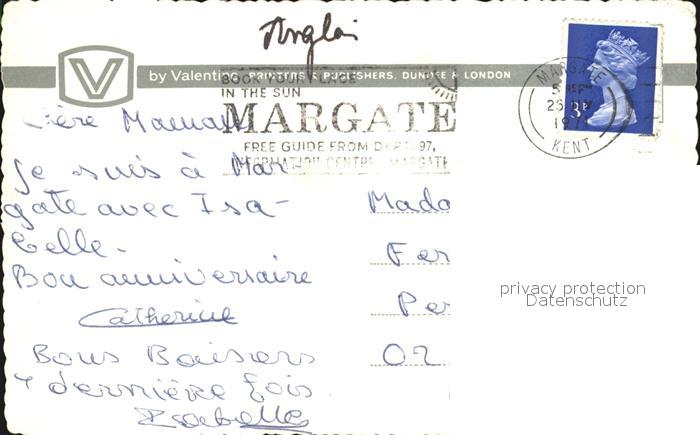 Anglai
V
by Valentine PRINTERS & PUBLISHERS, DUNDEE & LONDON
BOOK YOUR PLACE
IN THE SUN
MARGATE
FREE GUIDE FROM DEPT. 97,
INFORMATION CENTRE, MARGATE
MARGATE
1971
KENT
3P
Chère Maman
Je suis à Mar-
gate avec Isa-
belle.
Bon anniversaire
Catherine
Bons Baisers
dernière fois
Isabelle
Mada
Fer
Per
02
privacy protection
Datenschutz